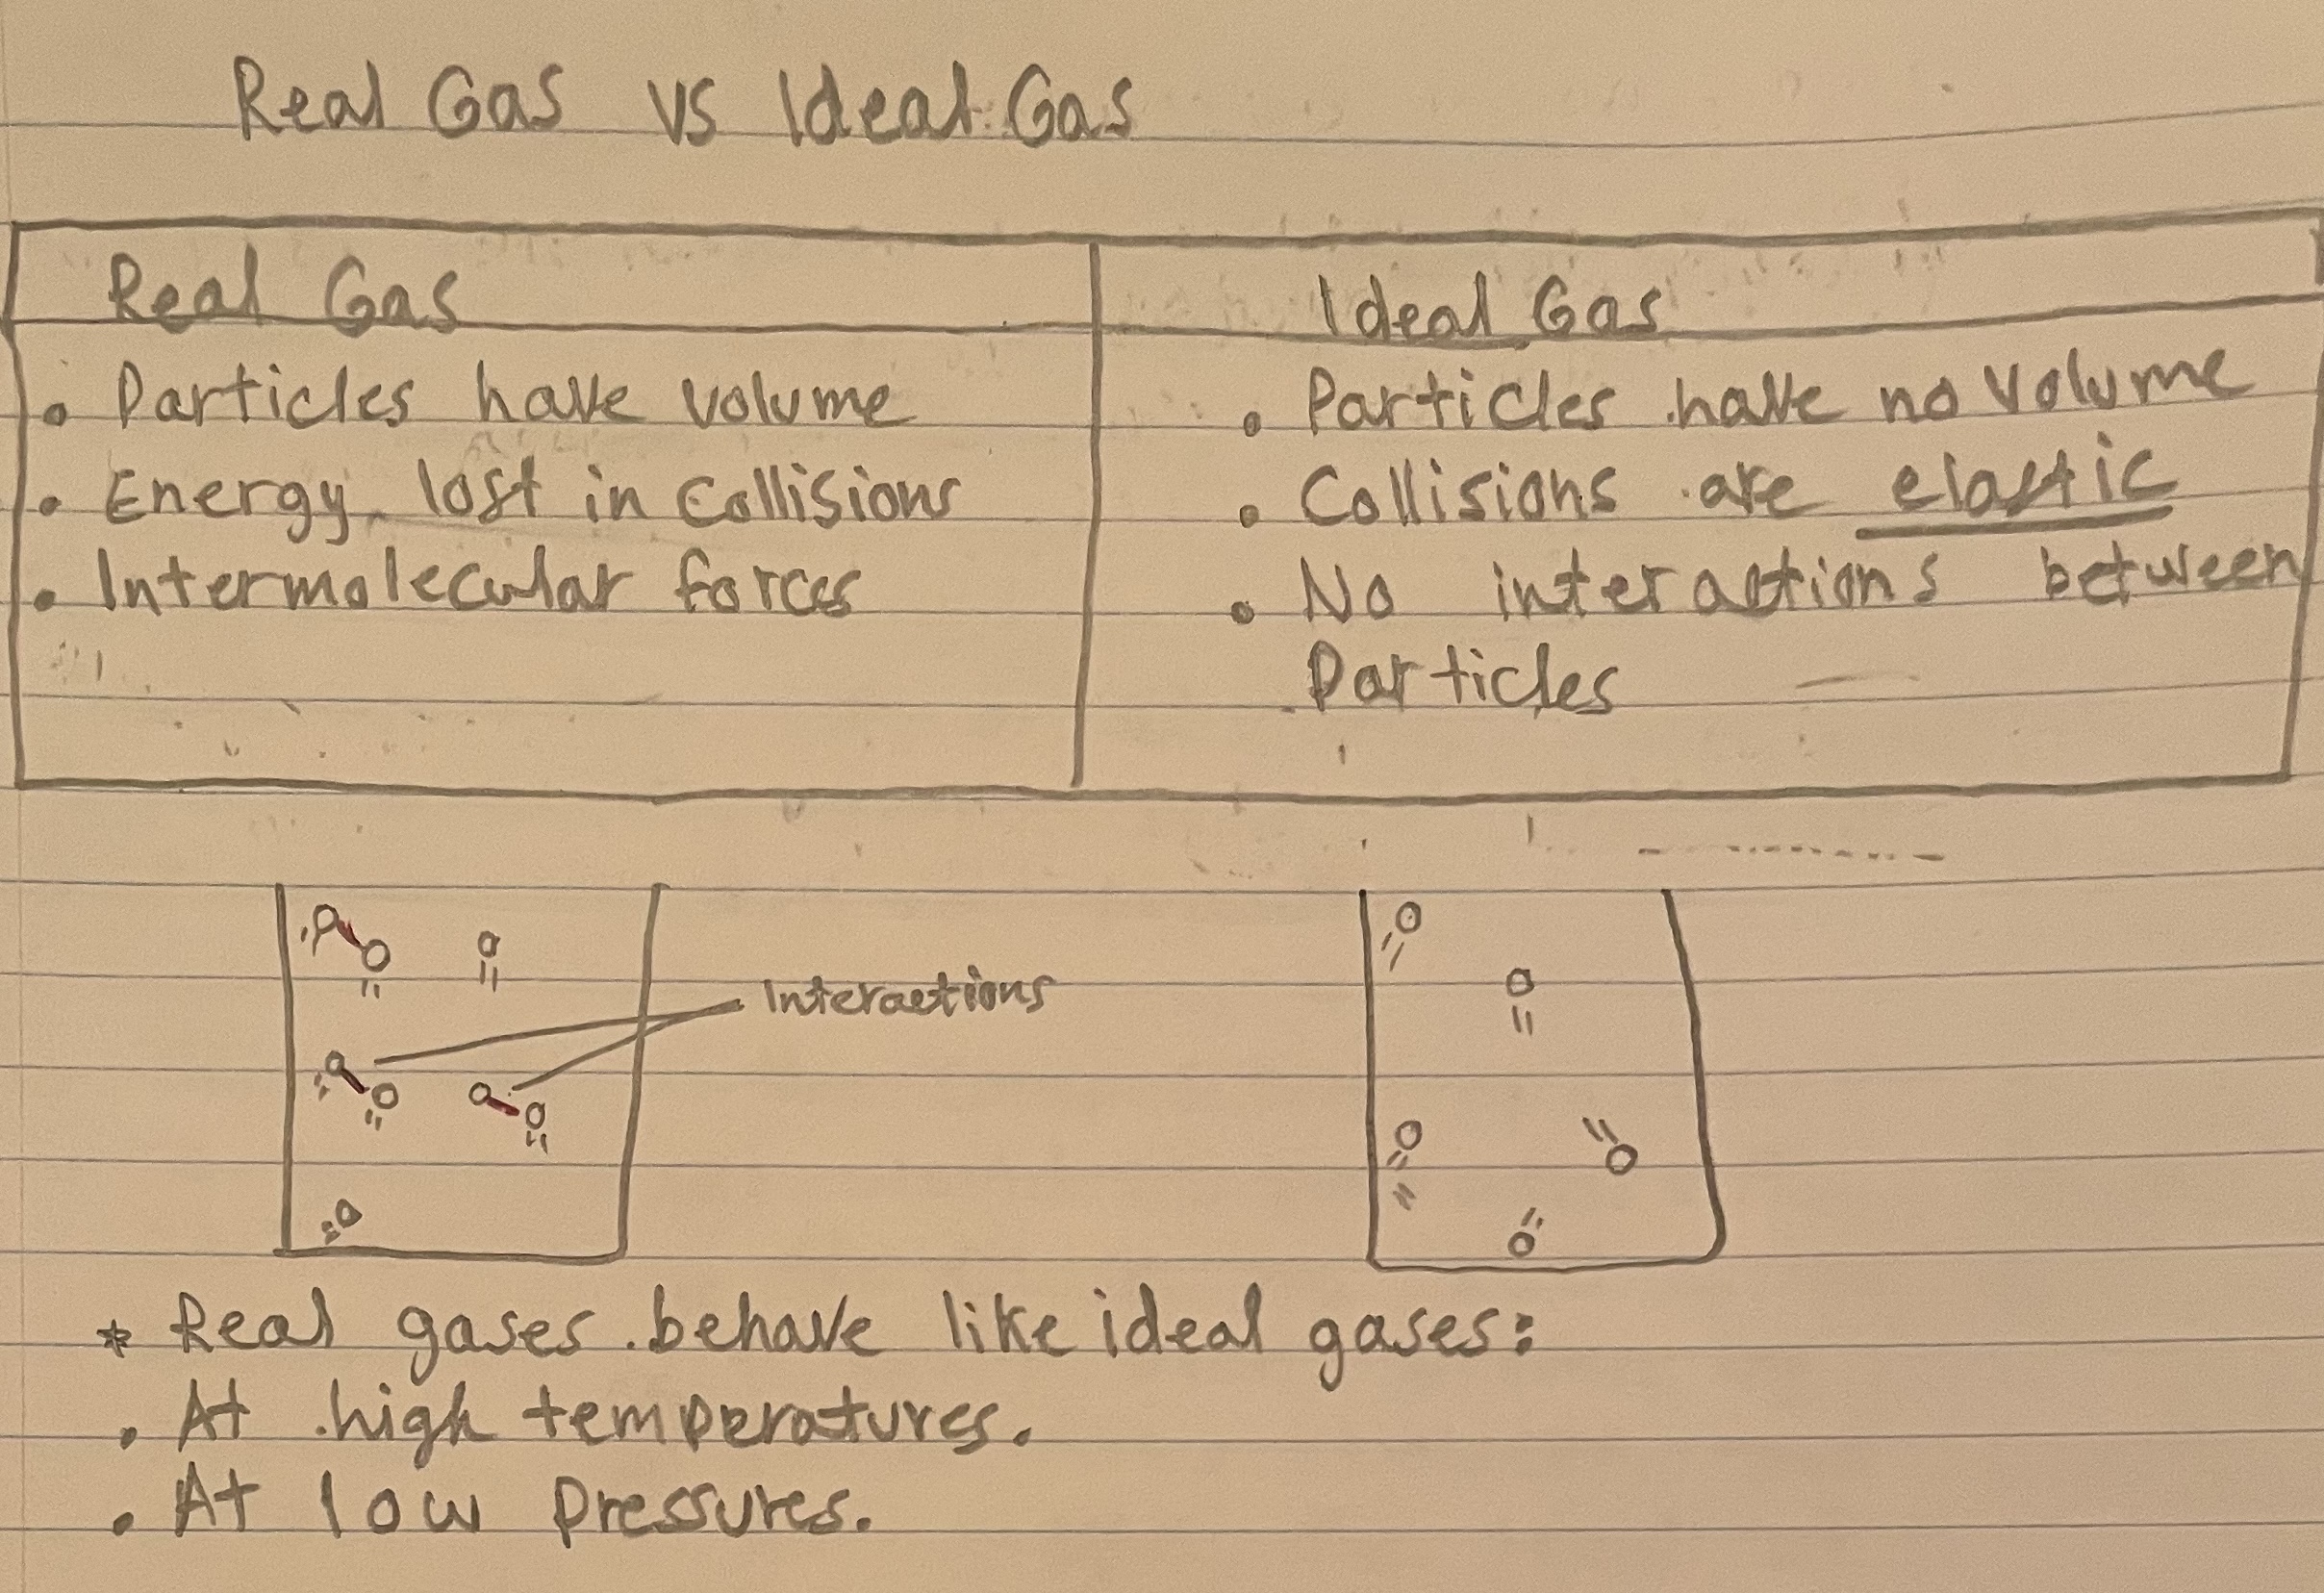 Real Gas vs Ideal Gas
Real Gas
• Particles have volume
• Energy lost in collisions
• Intermolecular forces
Ideal Gas
• Particles have no volume
• Collisions are elastic
• No interactions between
Particles
Interactions
* Real gases behave like ideal gases:
• At high temperatures.
• At low pressures.